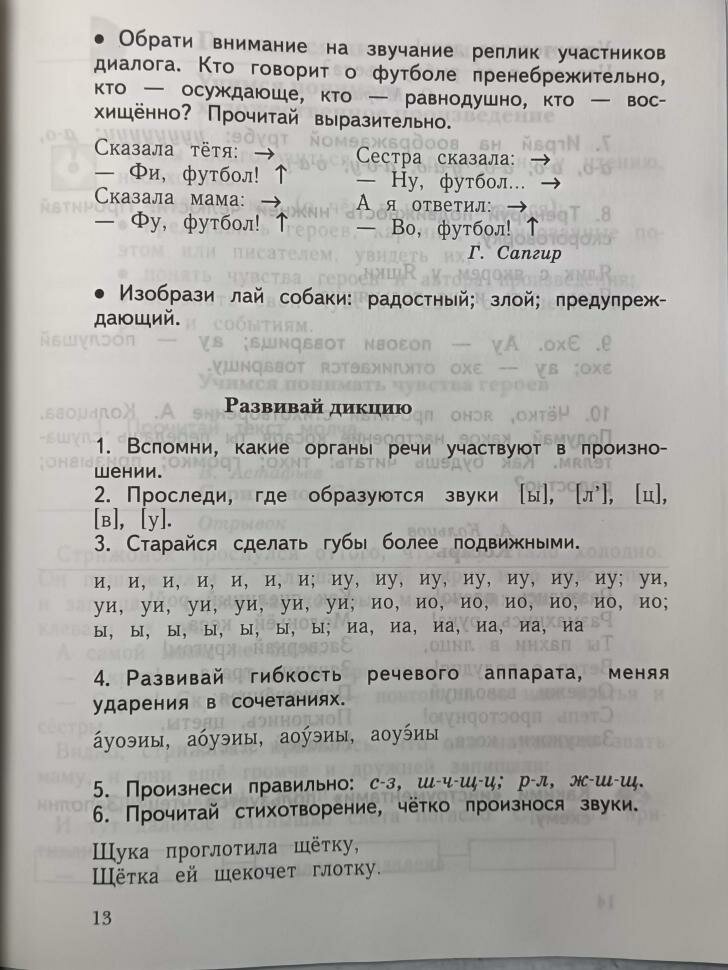 • Обрати внимание на звучание реплик участников
диалога. Кто говорит о футболе пренебрежительно,
кто — осуждающе, кто — равнодушно, кто — вос-
хищённо? Прочитай выразительно.
Сказала тётя: →
— Фи, футбол! ↑
Сказала мама: →
— Фу, футбол! ↑
Сестра сказала: →
— Ну, футбол... →
А я ответил: →
— Во, футбол! ↑
Г. Сапгир
• Изобрази лай собаки: радостный; злой; предупреж-
дающий.
Развивай дикцию
1. Вспомни, какие органы речи участвуют в произно-
шении.
2. Проследи, где образуются звуки [ы], [л’], [ц],
[в], [у].
3. Старайся сделать губы более подвижными.
и, и, и, и, и, и, и; иу, иу, иу, иу, иу, иу, иу; уи,
уи, уи, уи, уи, уи, уи; ио, ио, ио, ио, ио, ио, ио;
ы, ы, ы, ы, ы, ы, ы; иа, иа, иа, иа, иа, иа
4. Развивай гибкость речевого аппарата, меняя
ударения в сочетаниях.
а́уоэиы, ао́уэиы, аоу́эиы, аоуэ́иы
5. Произнеси правильно: с-з, ш-ч-щ-ц; р-л, ж-ш-щ.
6. Прочитай стихотворение, чётко произнося звуки.
Щука проглотила щётку,
Щётка ей щекочет глотку.
13